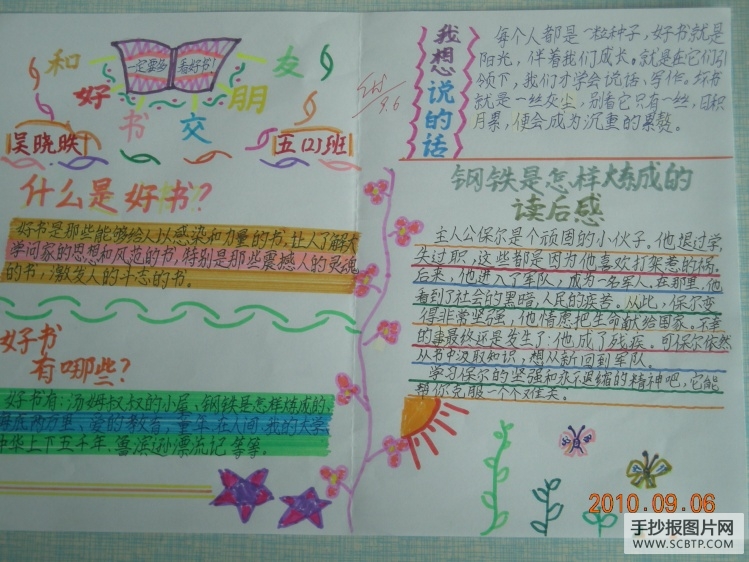 和好书交朋友
一定要多看好书!
吴晓昳
五(2)班
什么是好书?
好书是那些能够给人以感染和力量的书.让人了解大
学问家的思想和风范的书,特别是那些震撼人的灵魂
的书,激发人的斗志的书.
好书
有哪些?
好书有:汤姆叔叔的小屋、钢铁是怎样炼成的、
海底两万里、爱的教育、童年、在人间、我的大学
中华上下五千年、鲁滨逊漂流记等等.
9.6
我想说的话
每个人都是一粒种子,好书就是
阳光,伴着我们成长。就是在它们引
领下,我们才学会说话、写作。坏书
就是一丝灰尘,别看它只有一丝,日积
月累,便会成为沉重的累赘。
钢铁是怎样炼成的
读后感
主人公保尔是个顽固的小伙子.他退过学,
失过职,这些都是因为他喜欢打架惹的祸.
后来,他进入了军队,成为一名军人.在那里,他
看到了社会的黑暗,人民的疾苦。从此,保尔变
得非常坚强,他情愿把生命献给国家。不幸
的事最终还是发生了:他成了残疾。可保尔依然
从书中汲取知识,想从新回到军队。
学习保尔的坚强和永不退缩的精神吧,它能
帮你克服一个个难关。
2010.09.06
手抄报图片网
WWW.SCBTP.COM